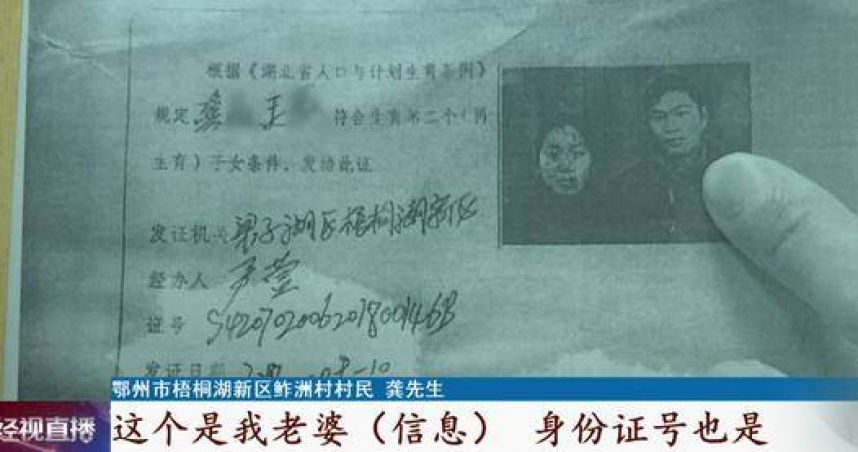 根据《湖北省人口与计划生育条例》
规定 龚 王 符合生育第二个(再
生育)子女条件,发给此证
发证机关 梁子湖区梧桐湖新区
经办人 尹莹
证号 S420702006201800146B
发证日期
鄂州市梧桐湖新区鲊洲村村民 龚先生
经视直播
这个是我老婆(信息) 身份证号也是